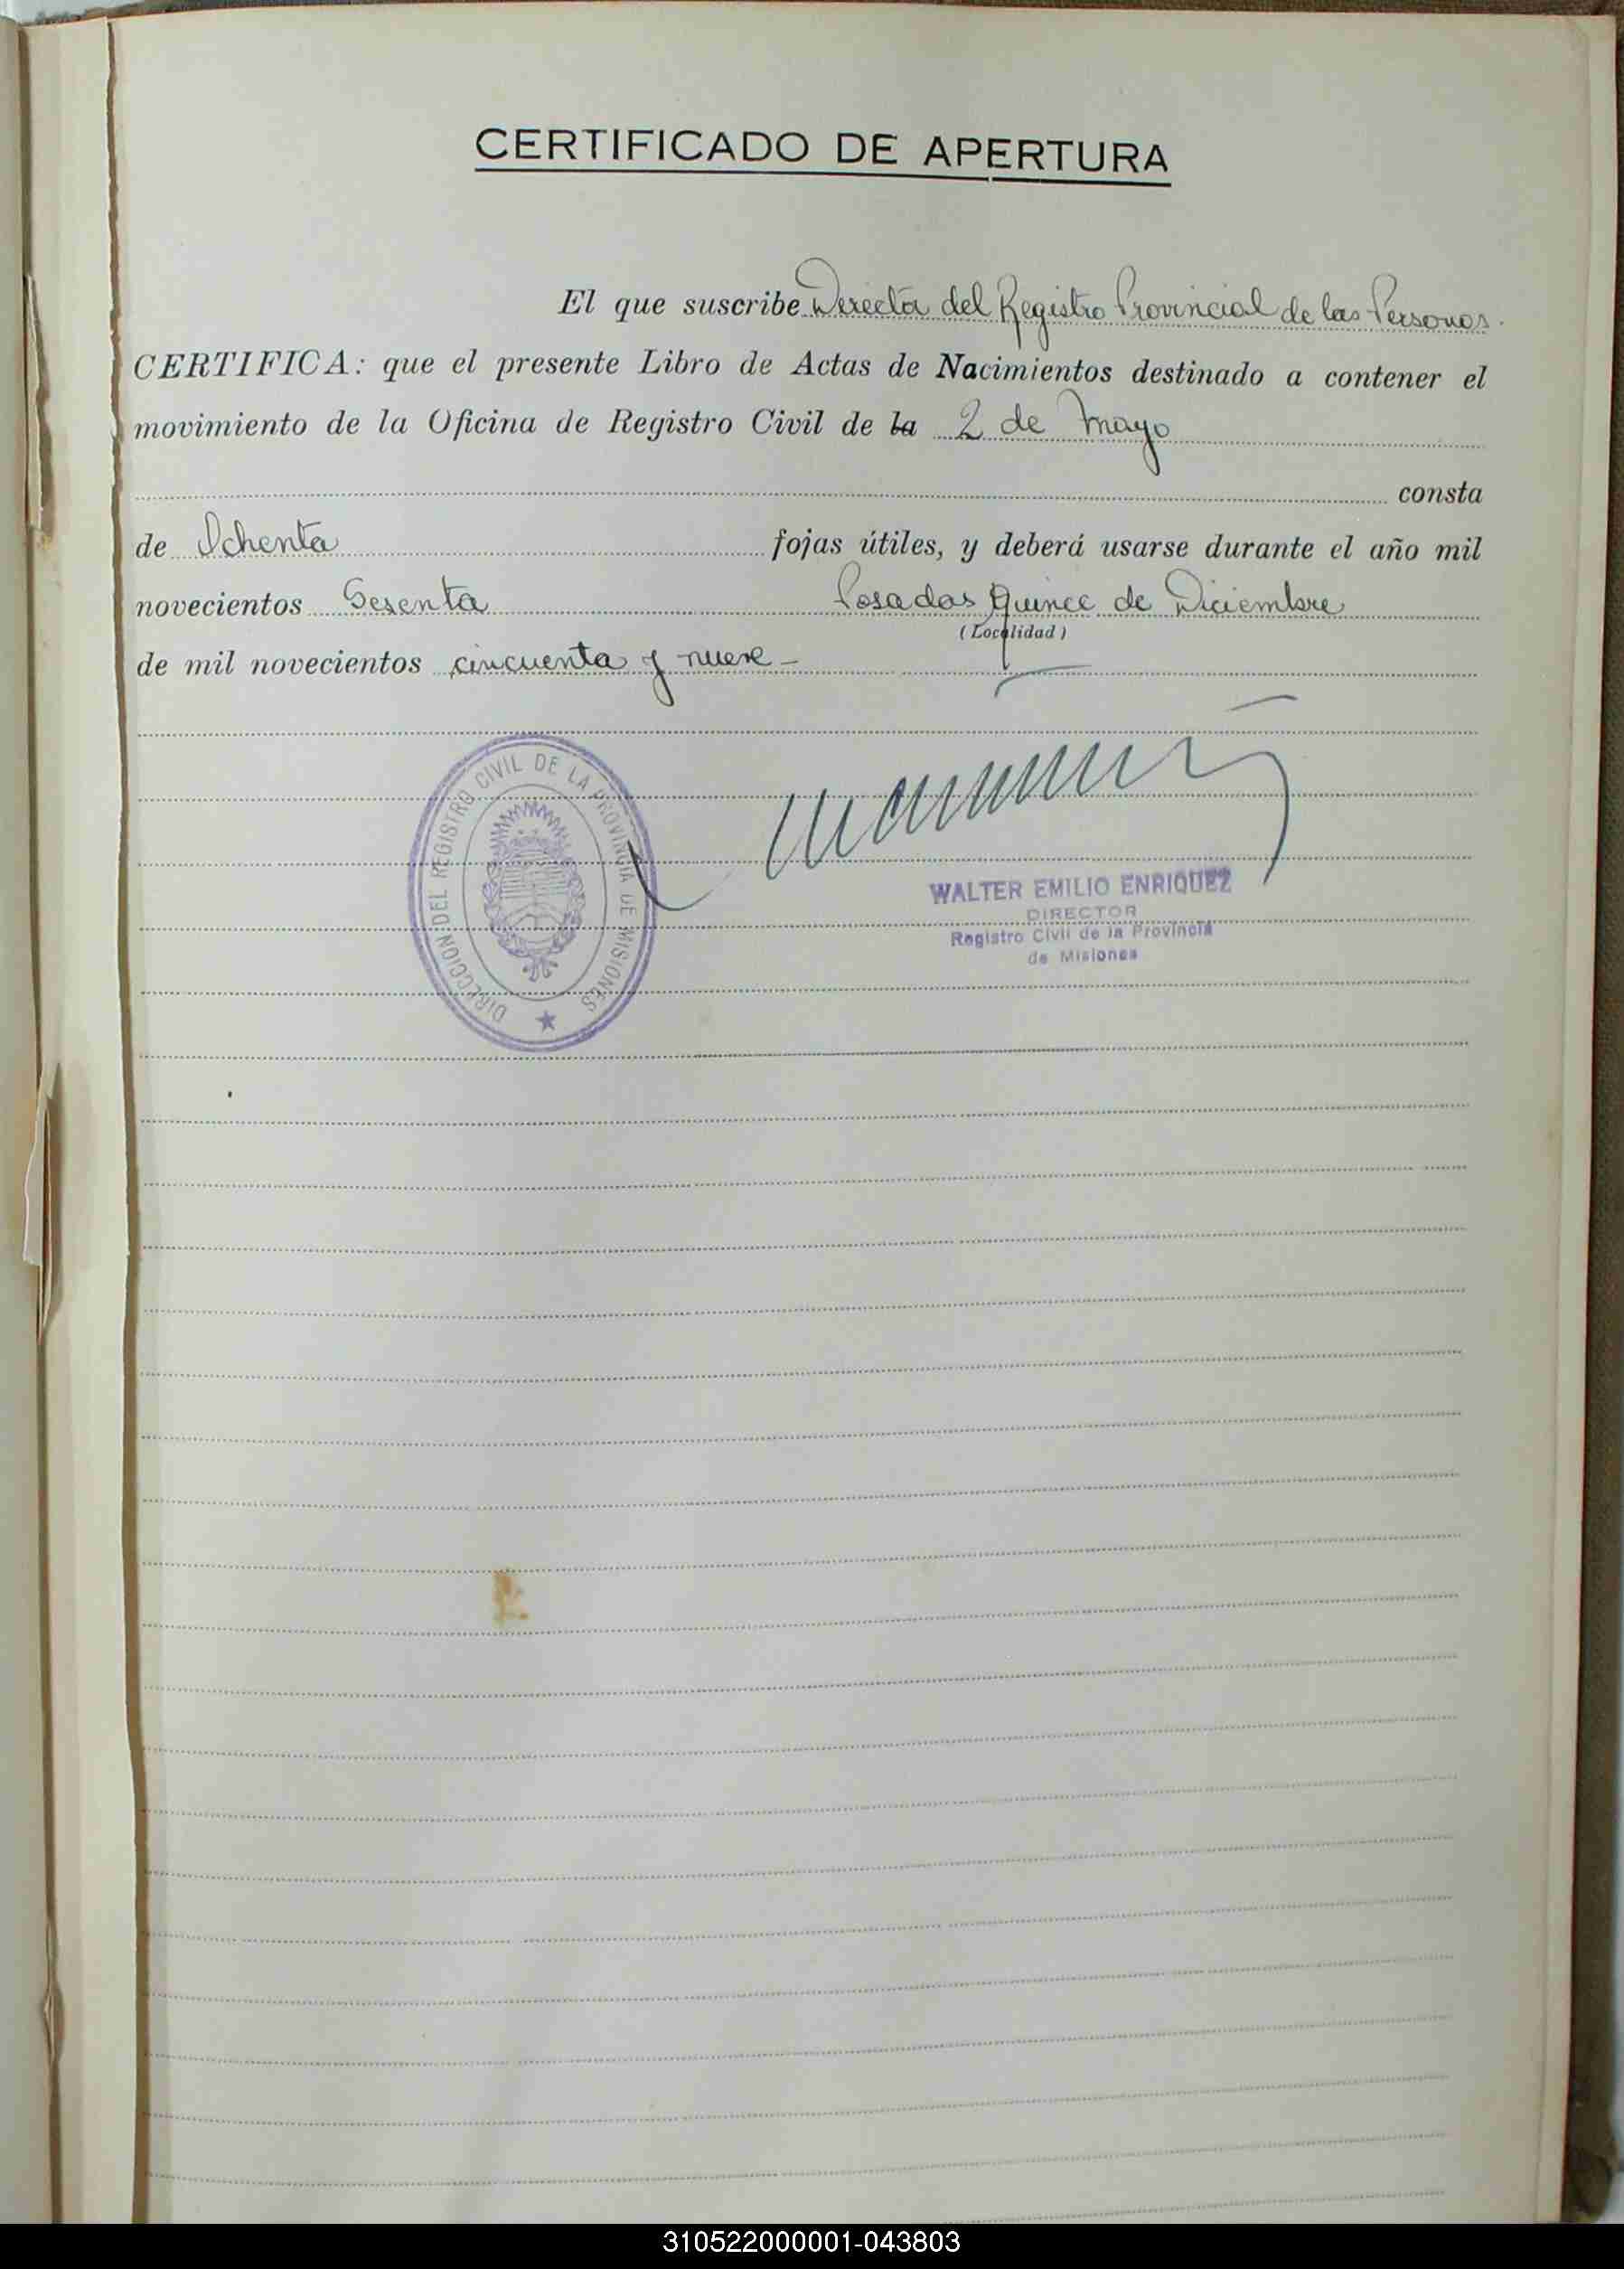 CERTIFICADO DE APERTURA
El que suscribe Director del Registro Provincial de las Personas.
CERTIFICA: que el presente Libro de Actas de Nacimientos destinado a contener el
movimiento de la Oficina de Registro Civil de la 2 de Mayo
consta
de Ochenta fojas útiles, y deberá usarse durante el año mil
novecientos Sesenta Posadas Quince de Diciembre
(Localidad)
de mil novecientos cincuenta y nueve -
DIRECCION DEL REGISTRO CIVIL DE LA PROVINCIA DE MISIONES
WALTER EMILIO ENRIQUEZ
DIRECTOR
Registro Civil de la Provincia
de Misiones
310522000001-043803